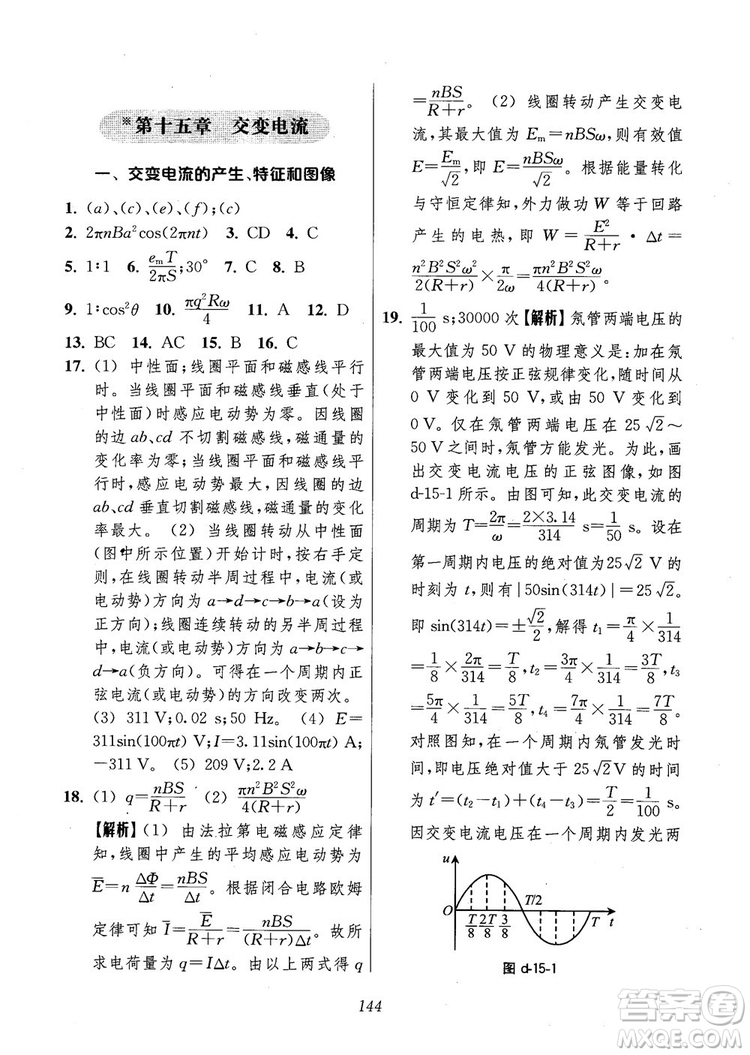 ※第十五章 交变电流
一、交变电流的产生、特征和图像
1. (a)、(c)、(e)、(f);(c)
2. 2πnBa²cos(2πnt) 3. CD 4. C
5. 1∶1 6. eₘT/2πS;30° 7. C 8. B
9. 1∶cos²θ 10. πq²Rω/4 11. A 12. D
13. BC 14. AC 15. BD 16. ABD
17. (1) 中性面;线圈平面和磁感线平行
时。当线圈平面和磁感线垂直(处于
中性面)时感应电动势为零。因线圈
的边 ab、cd 不切割磁感线,磁通量的
变化率为零;当线圈平面和磁感线平
行时,感应电动势最大,因线圈的边
ab、cd 垂直切割磁感线,磁通量的变化
率最大。 (2) 当线圈转动从中性面
(图中所示位置)开始计时,由右手定
则,在线圈转动半周过程中,电流(或
电动势)方向为 a→d→c→b→a(设为
正方向);线圈连续转动的另半周过程
中,电流(或电动势)方向为 a→b→c→
d→a(负方向)。可得在一个周期内正
弦电流(或电动势)的方向改变两次。
(3) 311 V;0.02 s;50 Hz。 (4) E=
311sin(100πt) V;I=3.11sin(100πt) A;
−311 V。 (5) 209 V;2.2 A
18. (1) q=nBS/(R+r) (2) πn²B²S²ω/4(R+r)
【解析】(1) 由法拉第电磁感应定律
知,线圈中产生的平均感应电动势为
E̅=n ΔΦ/Δt=nBS/Δt。根据闭合电路欧姆
定律可知 I̅=E̅/(R+r)=nBS/(R+r)Δt。故所
求电荷量为 q=I̅Δt。由以上两式得 q
=nBS/(R+r)。 (2) 线圈转动产生交变电
流,其最大值为 Eₘ=nBSω,则有效值
E=Eₘ/√2,即 E=nBSω/√2。根据能量转化
与守恒定律知,外力做功 W 等于回路
产生的电热,即 W=E²/(R+r)·Δt=
n²B²S²ω²/2(R+r)×π/ω=πn²B²S²ω/4(R+r)。
19. 1/100 s;30000 次【解析】氖管两端电压的
最大值为 50 V 的物理意义是:加在氖
管两端电压按正弦规律变化,随时间从
0 V 变化到 50 V,或由 50 V 变化到
0 V。但只有在氖管两端电压在 25√2~
50 V时间内,氖管方能发光。为此,画
出交变电流电压的正弦图像,如图
d-15-1 所示。由图可知,此交变电流的
周期为 T=2π/ω=2×3.14/314 s=1/50 s。设在
第一周期内电压的绝对值为 25√2 V
的时刻为 t,则有|50sin(314t)|=25√2。
即 sin(314t)=±√2/2,解得 t₁=π/4×1/314
=1/8×2π/314=T/8,t₂=3π/4×1/314=3T/8,t₃=
5π/4×1/314=5T/8,t₄=7π/4×1/314=7T/8。
对照图知,在一个周期内氖管发光时
间,即电压绝对值大于 25√2 V的时间
为 t′=(t₂−t₁)+(t₄−t₃)=T/2=1/100 s。
因交变电流电压在一个周期内发光两
u
T/2
O T/8 2T/8 3T/8 T t
图 d-15-1
144
答案圈
MXQE.COM